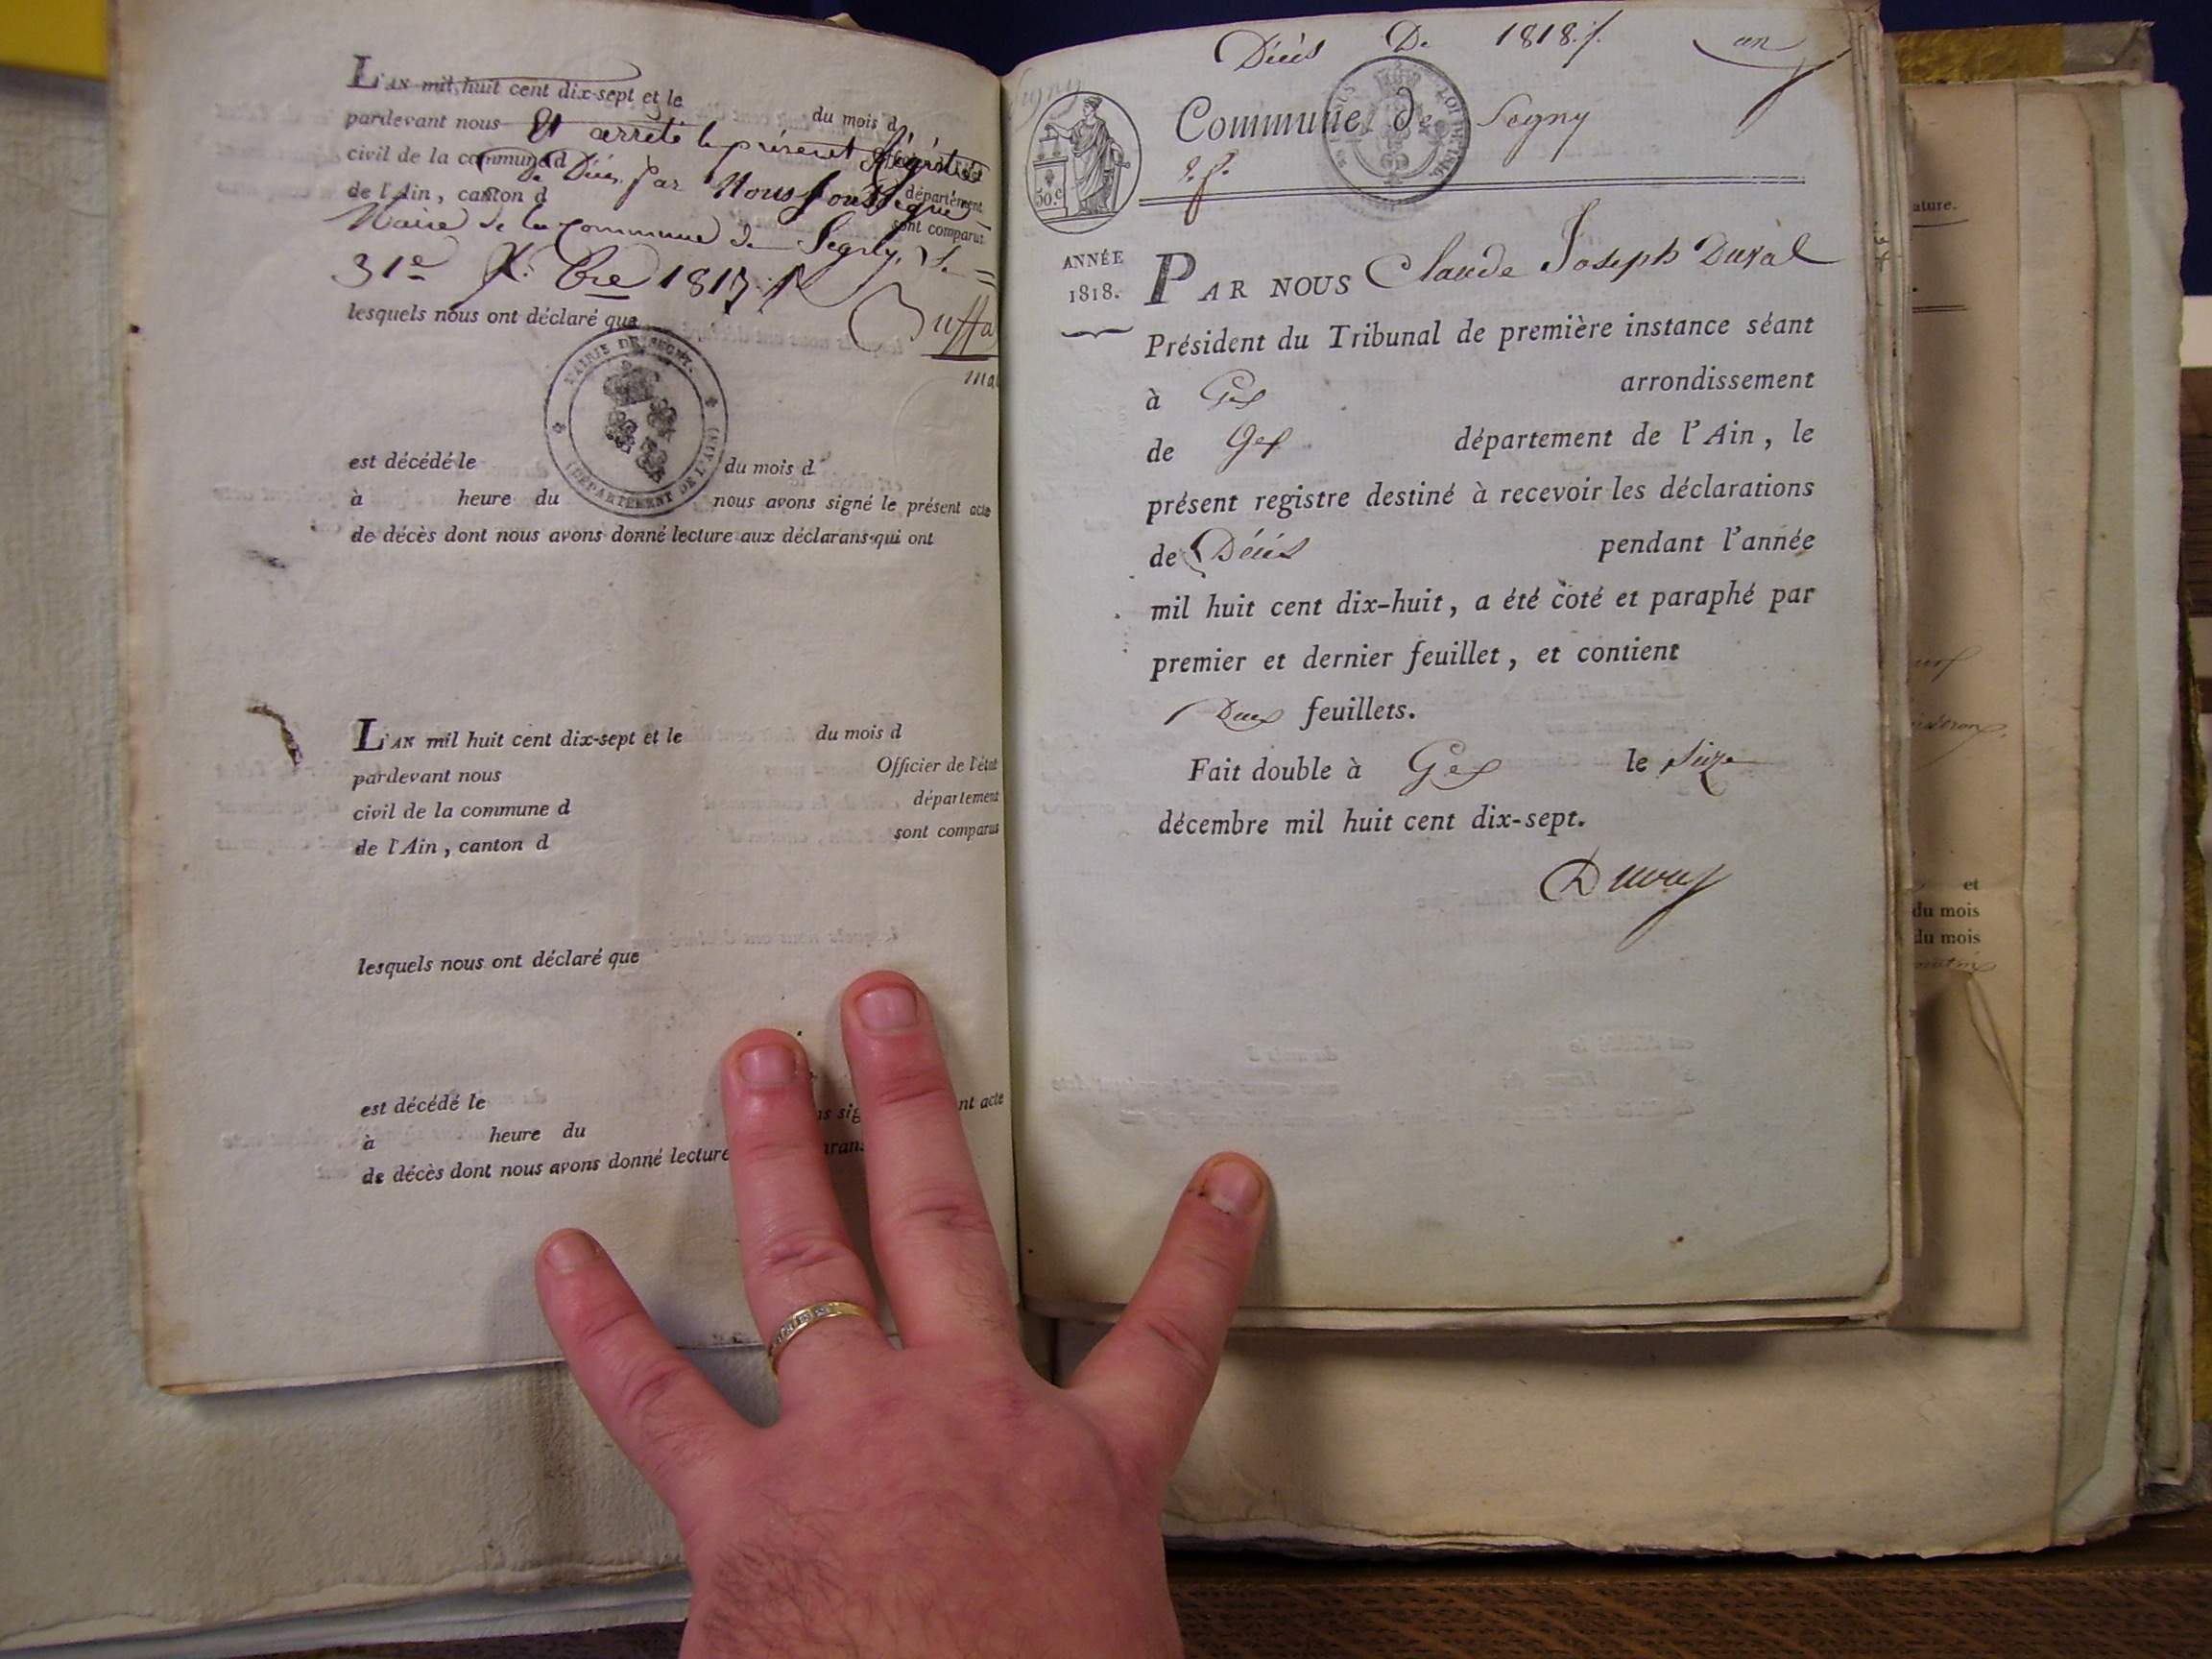 L'AN mil huit cent dix-sept et le du mois d
pardevant nous
Et arrêté le présent Régistre
civil de la commune d
De Décès par Nous Soussigné
de l'Ain, canton d département
Maire de la Commune de Segny, Le sont comparus
31e X.bre 1817
lesquels nous ont déclaré que
MAIRIE DE SEGNY.
(DÉPARTEMENT DE L'AIN)
est décédé le du mois d
à heure du nous avons signé le présent acte
de décès dont nous avons donné lecture aux déclarans qui ont
L'AN mil huit cent dix-sept et le du mois d
pardevant nous Officier de l'état
civil de la commune d département
de l'Ain, canton d sont comparus
lesquels nous ont déclaré que
est décédé le
à heure du ns sig nt acte
de décès dont nous avons donné lecture arans
Décès De 1818 un
Commune de Segny
50.c
ANNÉE
1818.
PAR NOUS Claude Joseph Duval
Président du Tribunal de première instance séant
à Gex arrondissement
de Gex département de l'Ain, le
présent registre destiné à recevoir les déclarations
de Décès pendant l'année
mil huit cent dix-huit, a été coté et paraphé par
premier et dernier feuillet, et contient
Deux feuillets.
Fait double à Gex le Seize
décembre mil huit cent dix-sept.
Duval
ature.
et
du mois
du mois